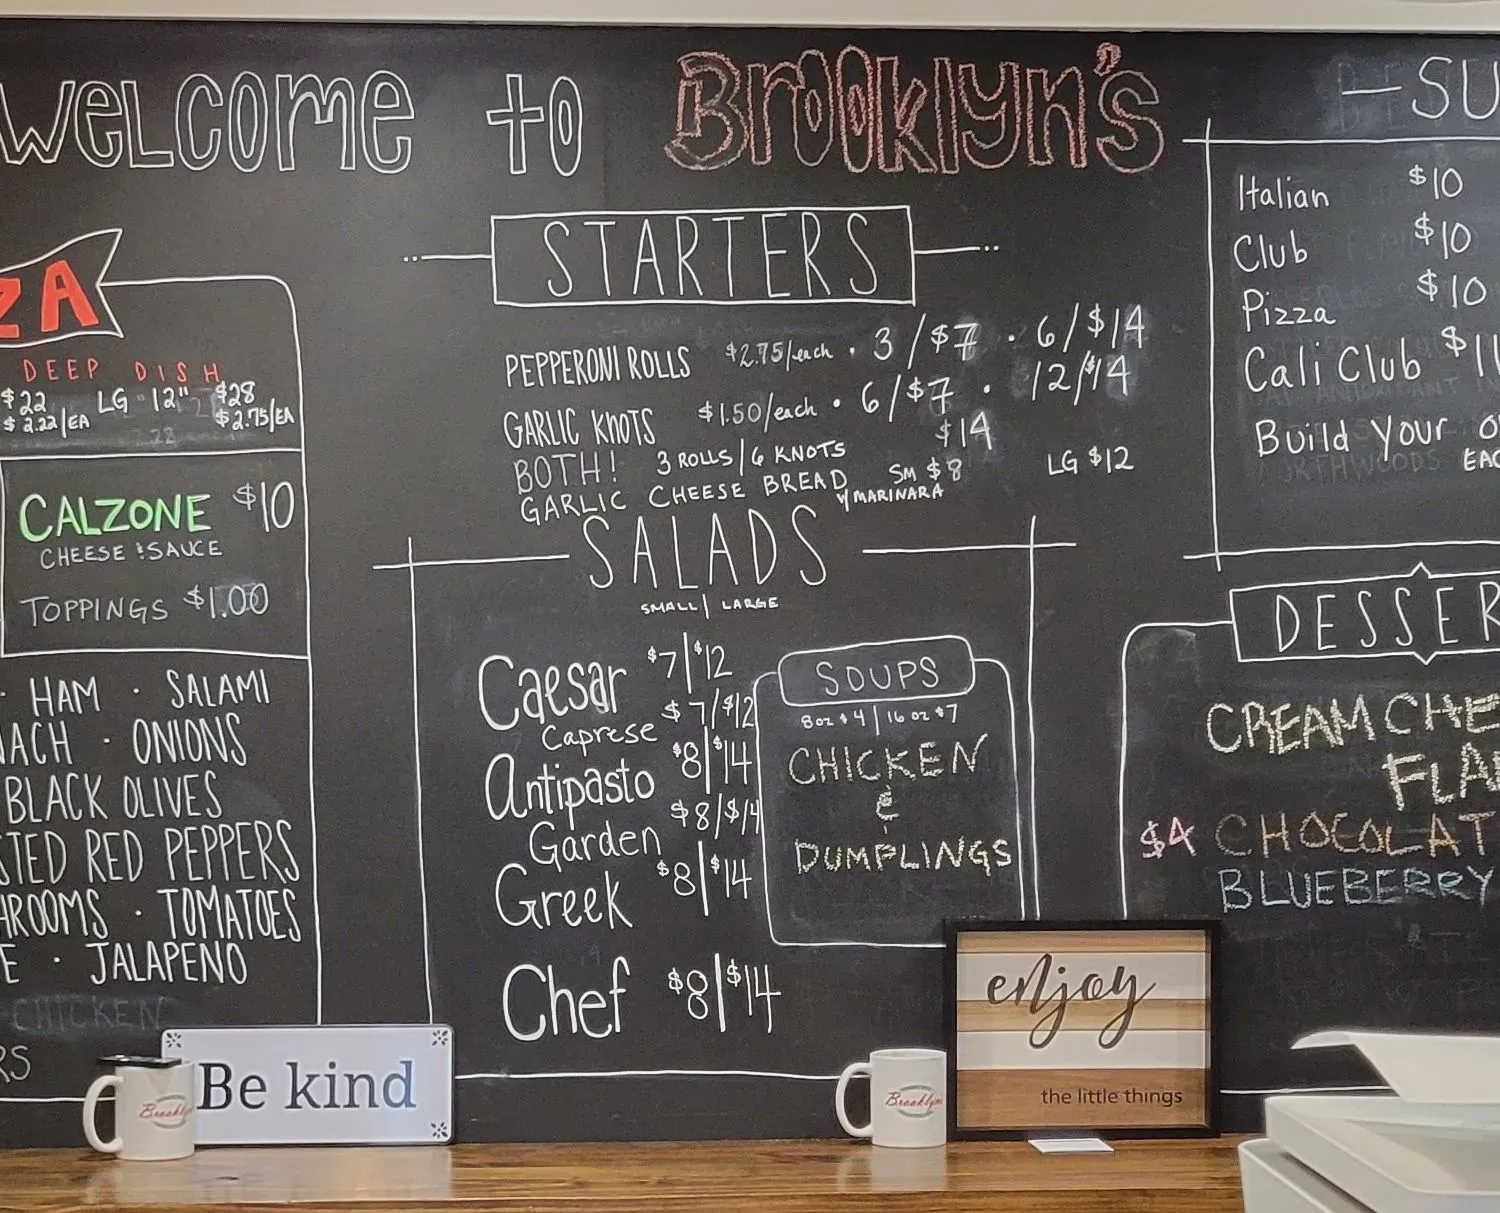 WELCOME to Brooklyn's
ZA
DEEP DISH
$22 LG 12" $28
$2.22/EA $2.75/EA
CALZONE $10
CHEESE & SAUCE
TOPPINGS $1.00
· HAM · SALAMI
· ONIONS
BLACK OLIVES
RED PEPPERS
· TOMATOES
· JALAPENO
CHICKEN
RS
STARTERS
PEPPERONI ROLLS $2.75/each · 3/$7 · 6/$14
GARLIC KNOTS $1.50/each · 6/$7 · 12/$14
BOTH! 3 ROLLS/6 KNOTS $14
GARLIC CHEESE BREAD SM $8 LG $12
W/MARINARA
SALADS
SMALL | LARGE
Caesar $7|$12
Caprese $7/$12
Antipasto $8|$14
Garden $8/$14
Greek $8|$14
Chef $8|$14
SOUPS
8 oz $4 | 16 oz $7
CHICKEN
&
DUMPLINGS
SU
Italian $10
Club $10
Pizza $10
Cali Club $11
Build Your
EAC
DESSER
CREAM CHE
FLA
$4 CHOCOLAT
BLUEBERRY
Be kind
Brooklyn
Brooklyns
enjoy
the little things